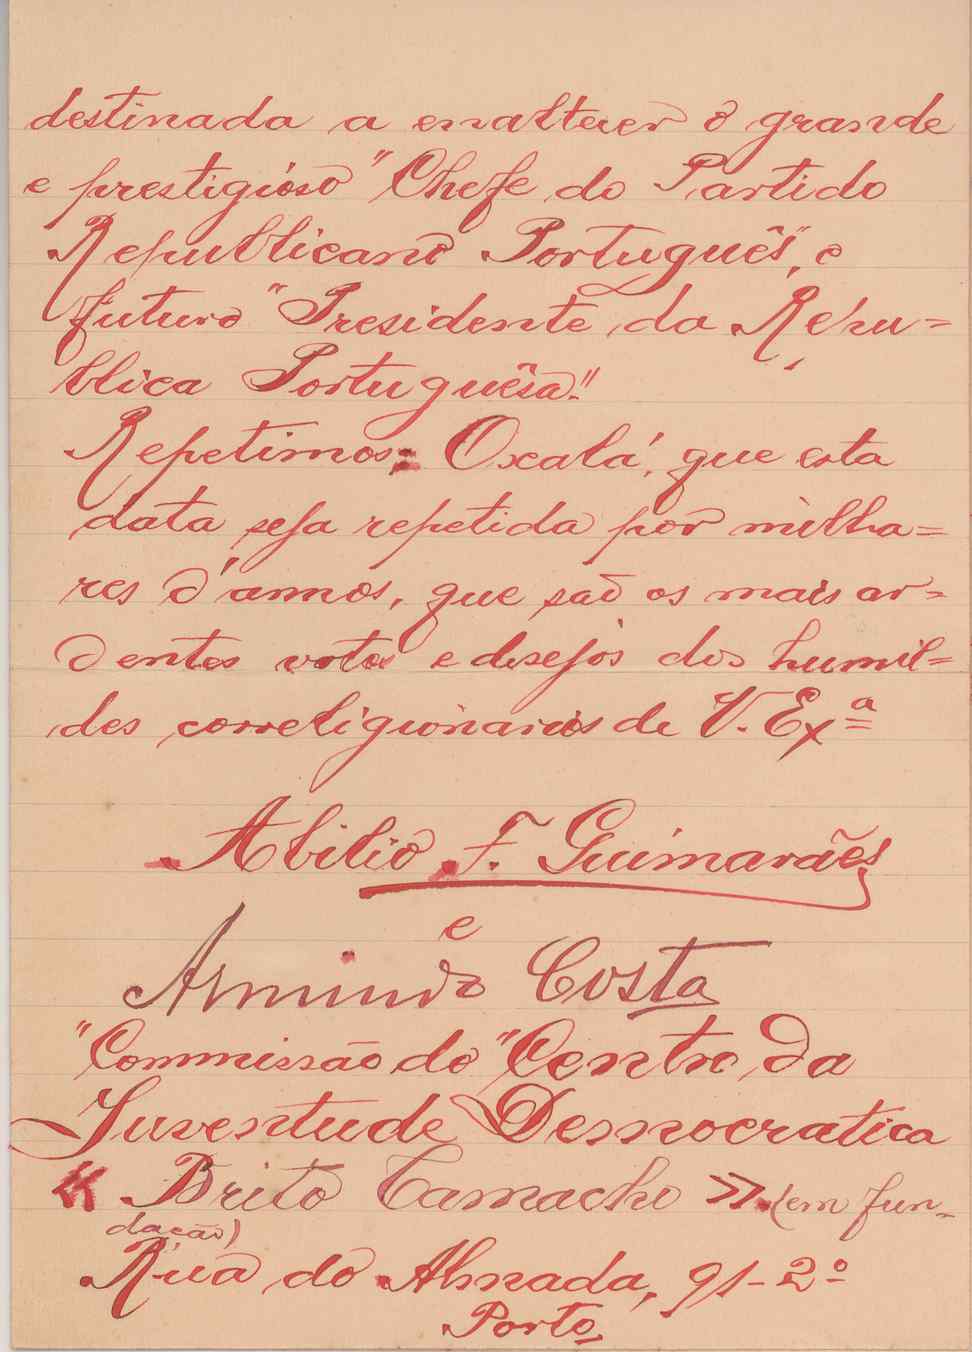 destinada a enaltecer o grande
e prestigioso "Chefe do Partido
Republicano Português", e
futuro "Presidente da Repu=
blica Portuguêsa."
Repetimos: Oxalá, que esta
data seja repetida por milha=
res d'annos, que são os mais ar=
dentes votos e desejos dos humil=
des correligionarios de V. Exª
Abilio F. Guimarães
e
Armindo Costa
"Commissão do "Centro da
Juventude Democratica
« Brito Camacho » (em fun-
dação)
Rua do Almada, 91-2º
Porto